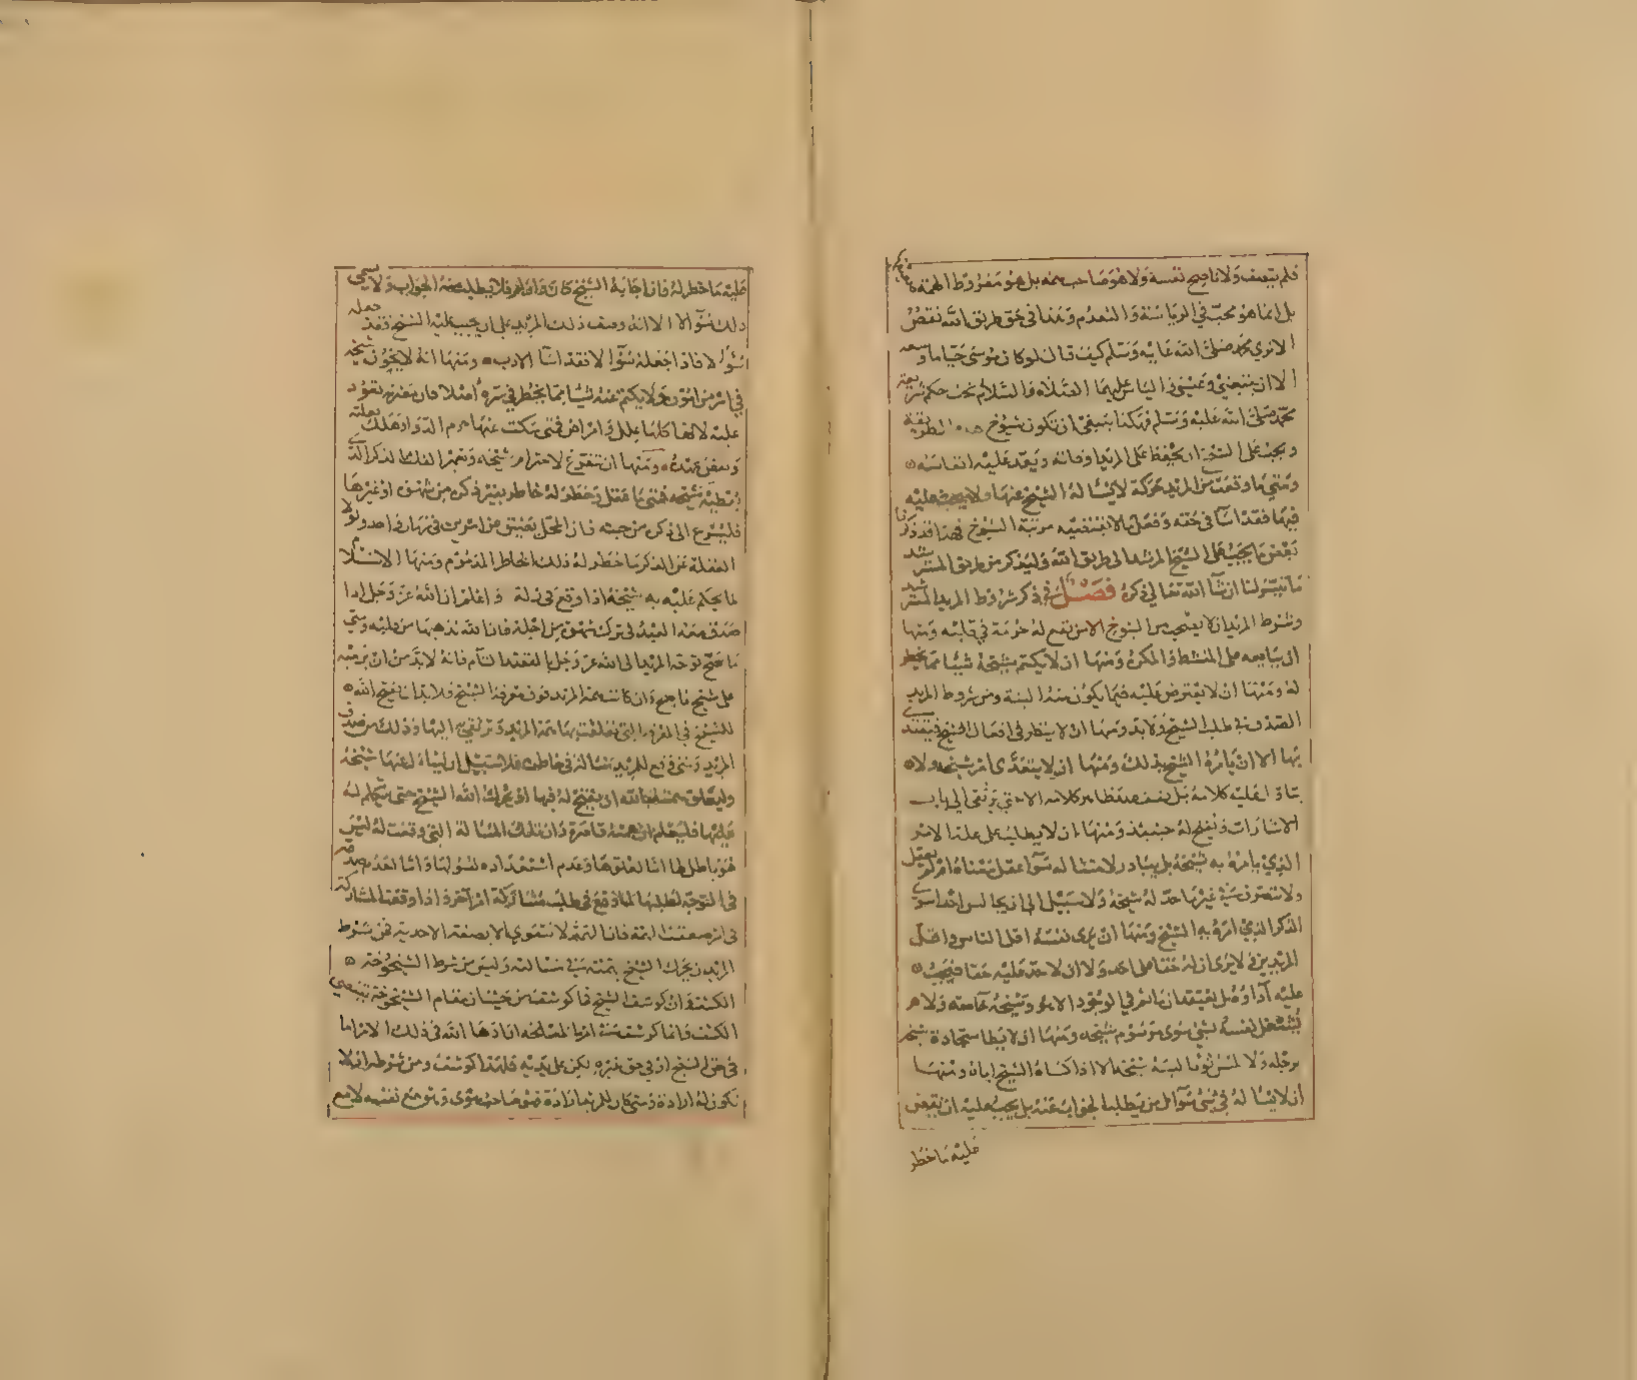 فلم ينصف ولا ناصح نفسه ولا هو صاحب همة بل هو مفروط الهمة
بل انما هو محبّ في الرياسة والتقدم وهذا في حق طريق الله نقص
الا ترى محمد صلى الله عليه وسلم كيف قال لو كان موسى حيّا ما وسعه
الا ان يتبعني وعيسى والياس عليهما الصلاة والسلام تحت حكم شريعة
محمد صلى الله عليه وسلم فهكذا ينبغي ان تكون شيوخ هذه الطريقة
ويجب على الشيخ ان يحفظ على المريد اوقاته ويعدّ عليه انفاسه
ومتى ما وقعت من المريد حركة لا يسأله الشيخ عنها ولا
فيها فقد اساء في حقه وفعل ما لا تقتضيه مرتبة الشيوخ فهذا قد ذكرنا
بعض ما يجب على الشيخ المرشد الى طريق الله وليذكر من طريق المسترشد
ما تيسر لنا ان شاء الله تعالى ذكره فصل في ذكر شروط المريد المسترشد
وشرط المريد ان لا يصحب من الشيوخ الا من تقع له حرمة في قلبه ومنها
ان يبايعه على المنشط والمكره ومنها ان لا يكتم شيخه شيئا مما يخطر
له ومنها ان لا يعترض عليه فيما يكون منه البتة ومن شروط المريد
الصدق في طلب الشيخ ولا بد ومنها ان لا ينظر في افعال الشيخ فيقتدي
بها الا ان يأمره الشيخ بذلك ومنها ان لا يتعدى امر شيخه ولا
يتاول عليه كلامه بل يقف عند ظاهر كلامه الا حتى يرتقي الى باب
الاشارات ويفتح له حينئذ ومنها ان لا يطلب على علة الامر
الذي يامره به شيخه بل يبادر لامتثاله سوآ عقل معناه او لم يعقل
ولا يتصرف في شيء غير ما حد له شيخه ولا سبيل الى ان يجالس احدا سوى
الذكر الذي امره به الشيخ ومنها ان يرى نفسه اقل الناس واقل
المريدين ولا يرى ان له حقا على احد ولا ان لاحد عليه حقا فيجب
عليه اداؤه بل يعتقد ان ما ثم في الوجود الا هو وشيخه خاصة ولا
يشتغل لنفسه بشيء سوى مرسوم شيخه ومنها ان لا يطا سجادة شيخه
برجله ولا لمس ثوبا لبسه شيخه الا اذا كساه الشيخ اياه ومنها
ان لا يسأله في شيء سؤال من يطلب الجواب عنه بل يجب عليه ان يعرض
عليه ما خطر
عليه ما خطر له فان اجابه الشيخ كان وان لم فلا يطلب منه الجواب ولا يسمى
ذلك سؤالا الا انه وصف ذلك المريد على ان يجيب عليه الشيخ فقد جعله
سؤالا فاذا جعله سؤالا فقد اسآ الادب ومنها انه لا يخون شيخه
في امر من امور ولا يكتم عنه شيئا مما يخطر في سره اصلا فان مضرته تعود
عليه لانها كلها علل وامراض فمتى سكت عنها حرم الدواء وهلك بعلته
ومنها ان يتفرغ لاحترام شيخه الذكر الذي
يعطيه شيخه فمتى ما غفل وخطر له خاطر بغير ذكر من شهوة او غيرها
فليسرع الى ذكر من حينه فان المحل يضيق من امرين في زمان واحد ولولا
الغفلة عن الذكر ما خطر له ذلك الخاطر المذموم ومنها الاستسلام
لما يحكم عليه به شيخه اذا وقع في زلة واعلم ان الله عز وجل اذا
صدق معه العبد في ترك شهوة من اجله فان الله يذهبها من قلبه ومتى
ما صح توجه المريد الى الله عز وجل بالقصد التام فانه لا بد من ان يرميه
على شيخ ناصح وان كانت همة المريد فوق معرفة الشيخ فلا بد ان يفتح الله
للشيخ في المعرفة التي تعلقت بها همة المريد ويرتقي اليها وذلك من صدق
المريد ومتى وقع للمريد مسألة في خاطره فلا سبيل ان يسأل عنها شيخه
وليعلق همته بالله ان يفتح له فيها او يحرك الله الشيخ حتى يتكلم له
عليها فليعلم ان همته قاصرة وان تلك المسألة التي وقعت له ليس
هو باطل لها اما لعلو وعدم استعداده لقبولها واما لعدم صدقه
في التوجه لطلبها لما وقع في طلب مشاركة امر آخر واذا وقعت المشاركة
في امر ضعفت الهمة فان الهمة لا تقوى الا بصفة الاحدية فمن شرط
المريد ان يحرك الشيخ بهمته في مسالته وليس من شرط الشيخوخة
الكشف وان كوشف الشيخ فما كوشف من حيث ان مقام الشيخوخة يقتضي
الكشف وانما كوشف منة لمصلحة ارادها الله في ذلك الامر اما
في حق الشيخ او في حق غيره يكون على يديه فلهذا كوشف ومن شروطه ان لا
تكون له ارادة ومتى كان للمريد ارادة فهو صاحب هوى وهو مع نفسه لا مع